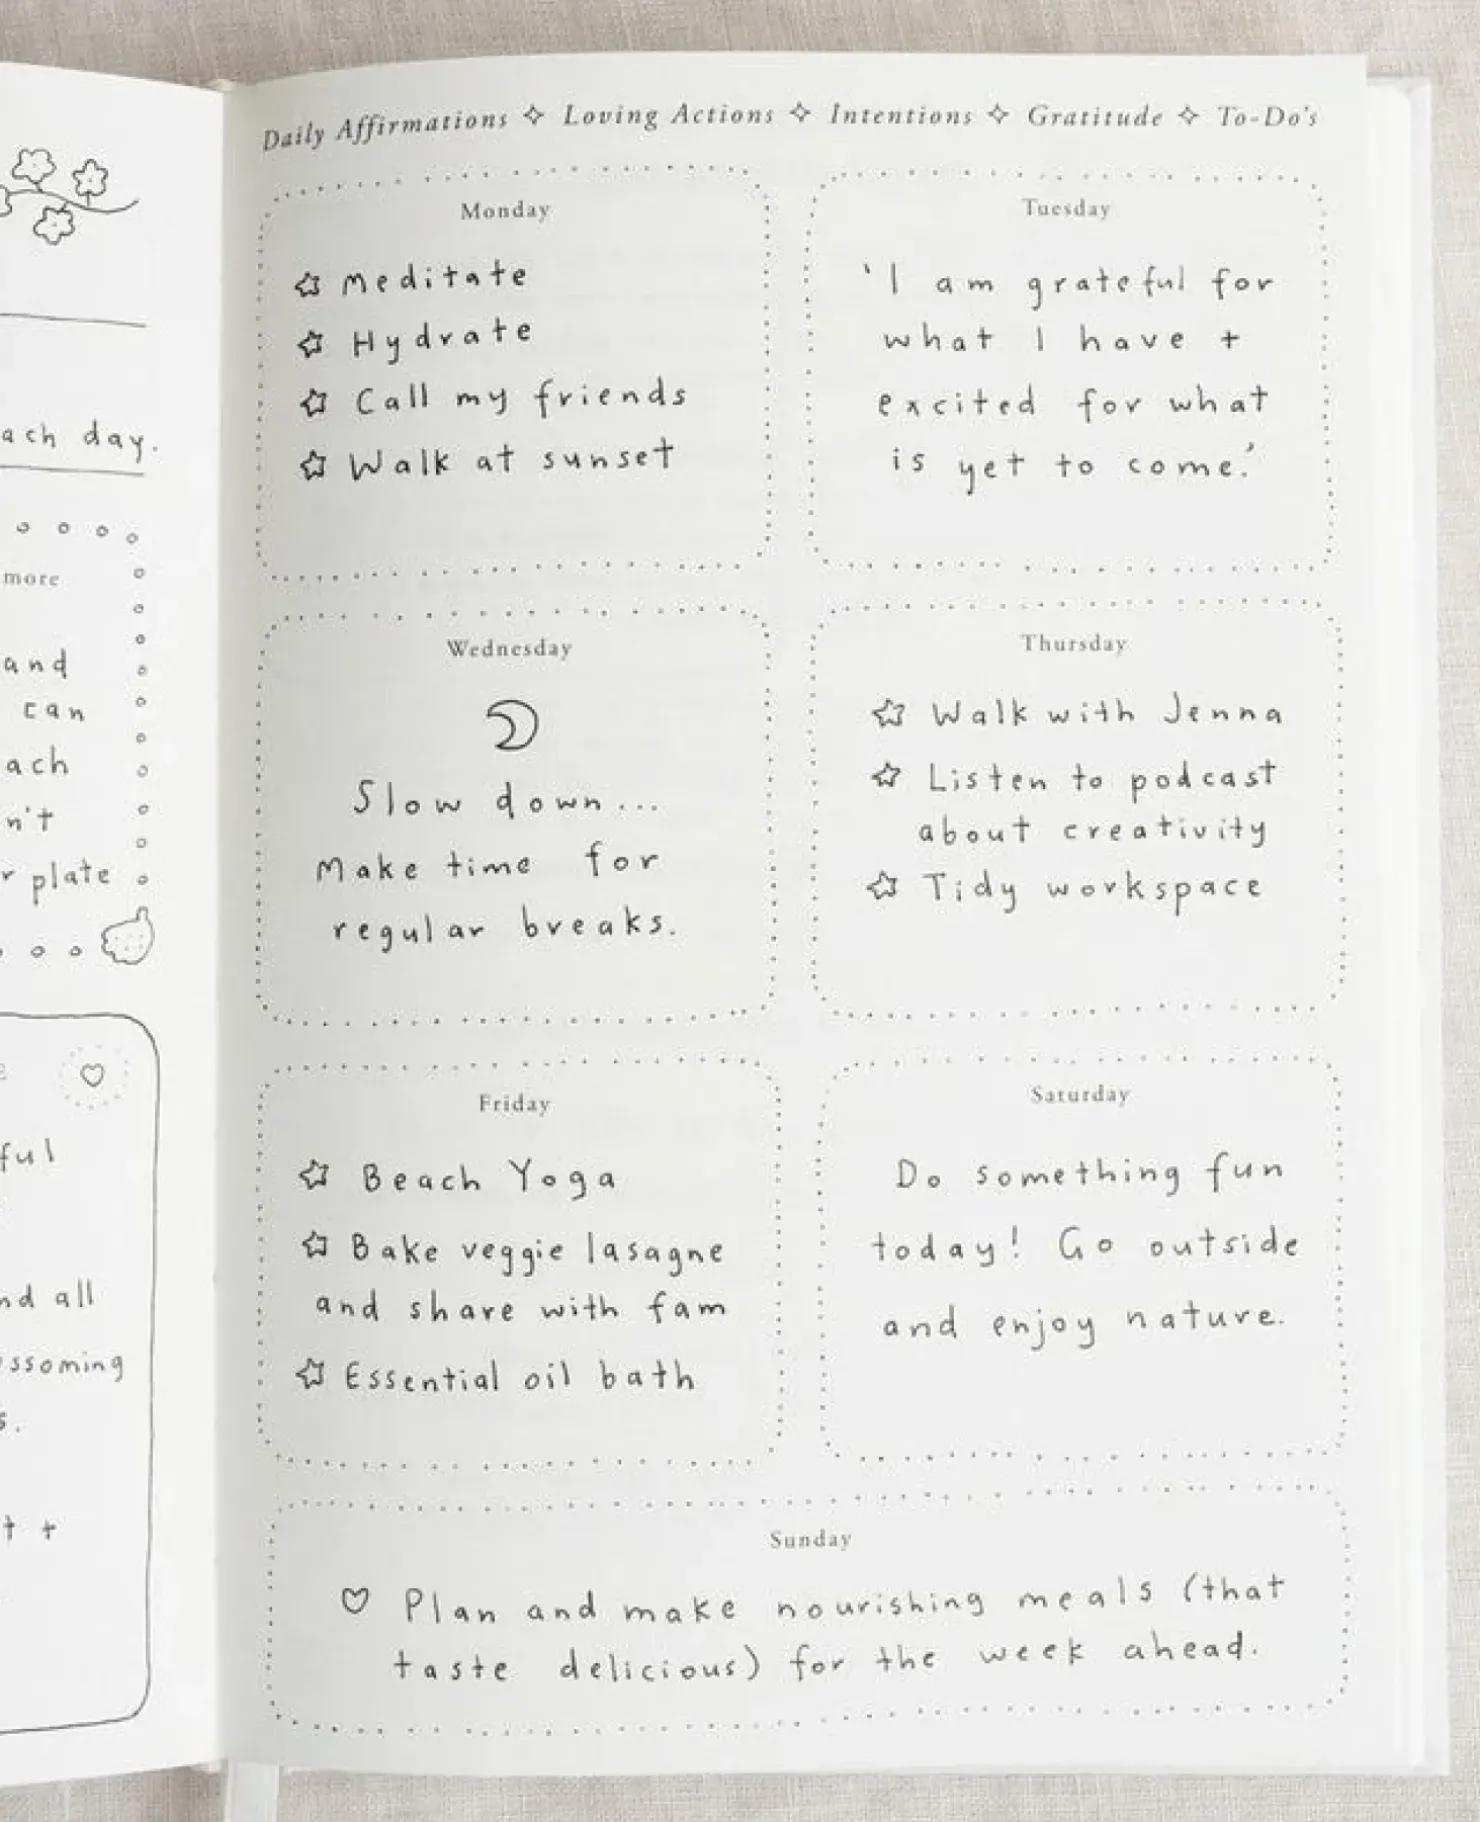 ach day.
more
and
can
ach
n't
plate
ful
nd all
ssoming
s.
t +
Daily Affirmations ✧ Loving Actions ✧ Intentions ✧ Gratitude ✧ To-Do's
Monday
Meditate
Hydrate
Call my friends
Walk at sunset
Tuesday
'I am grateful for
what I have +
excited for what
is yet to come.'
Wednesday
Slow down...
Make time for
regular breaks.
Thursday
Walk with Jenna
Listen to podcast
about creativity
Tidy workspace
Friday
Beach Yoga
Bake veggie lasagne
and share with fam
Essential oil bath
Saturday
Do something fun
today! Go outside
and enjoy nature.
Sunday
Plan and make nourishing meals (that
taste delicious) for the week ahead.